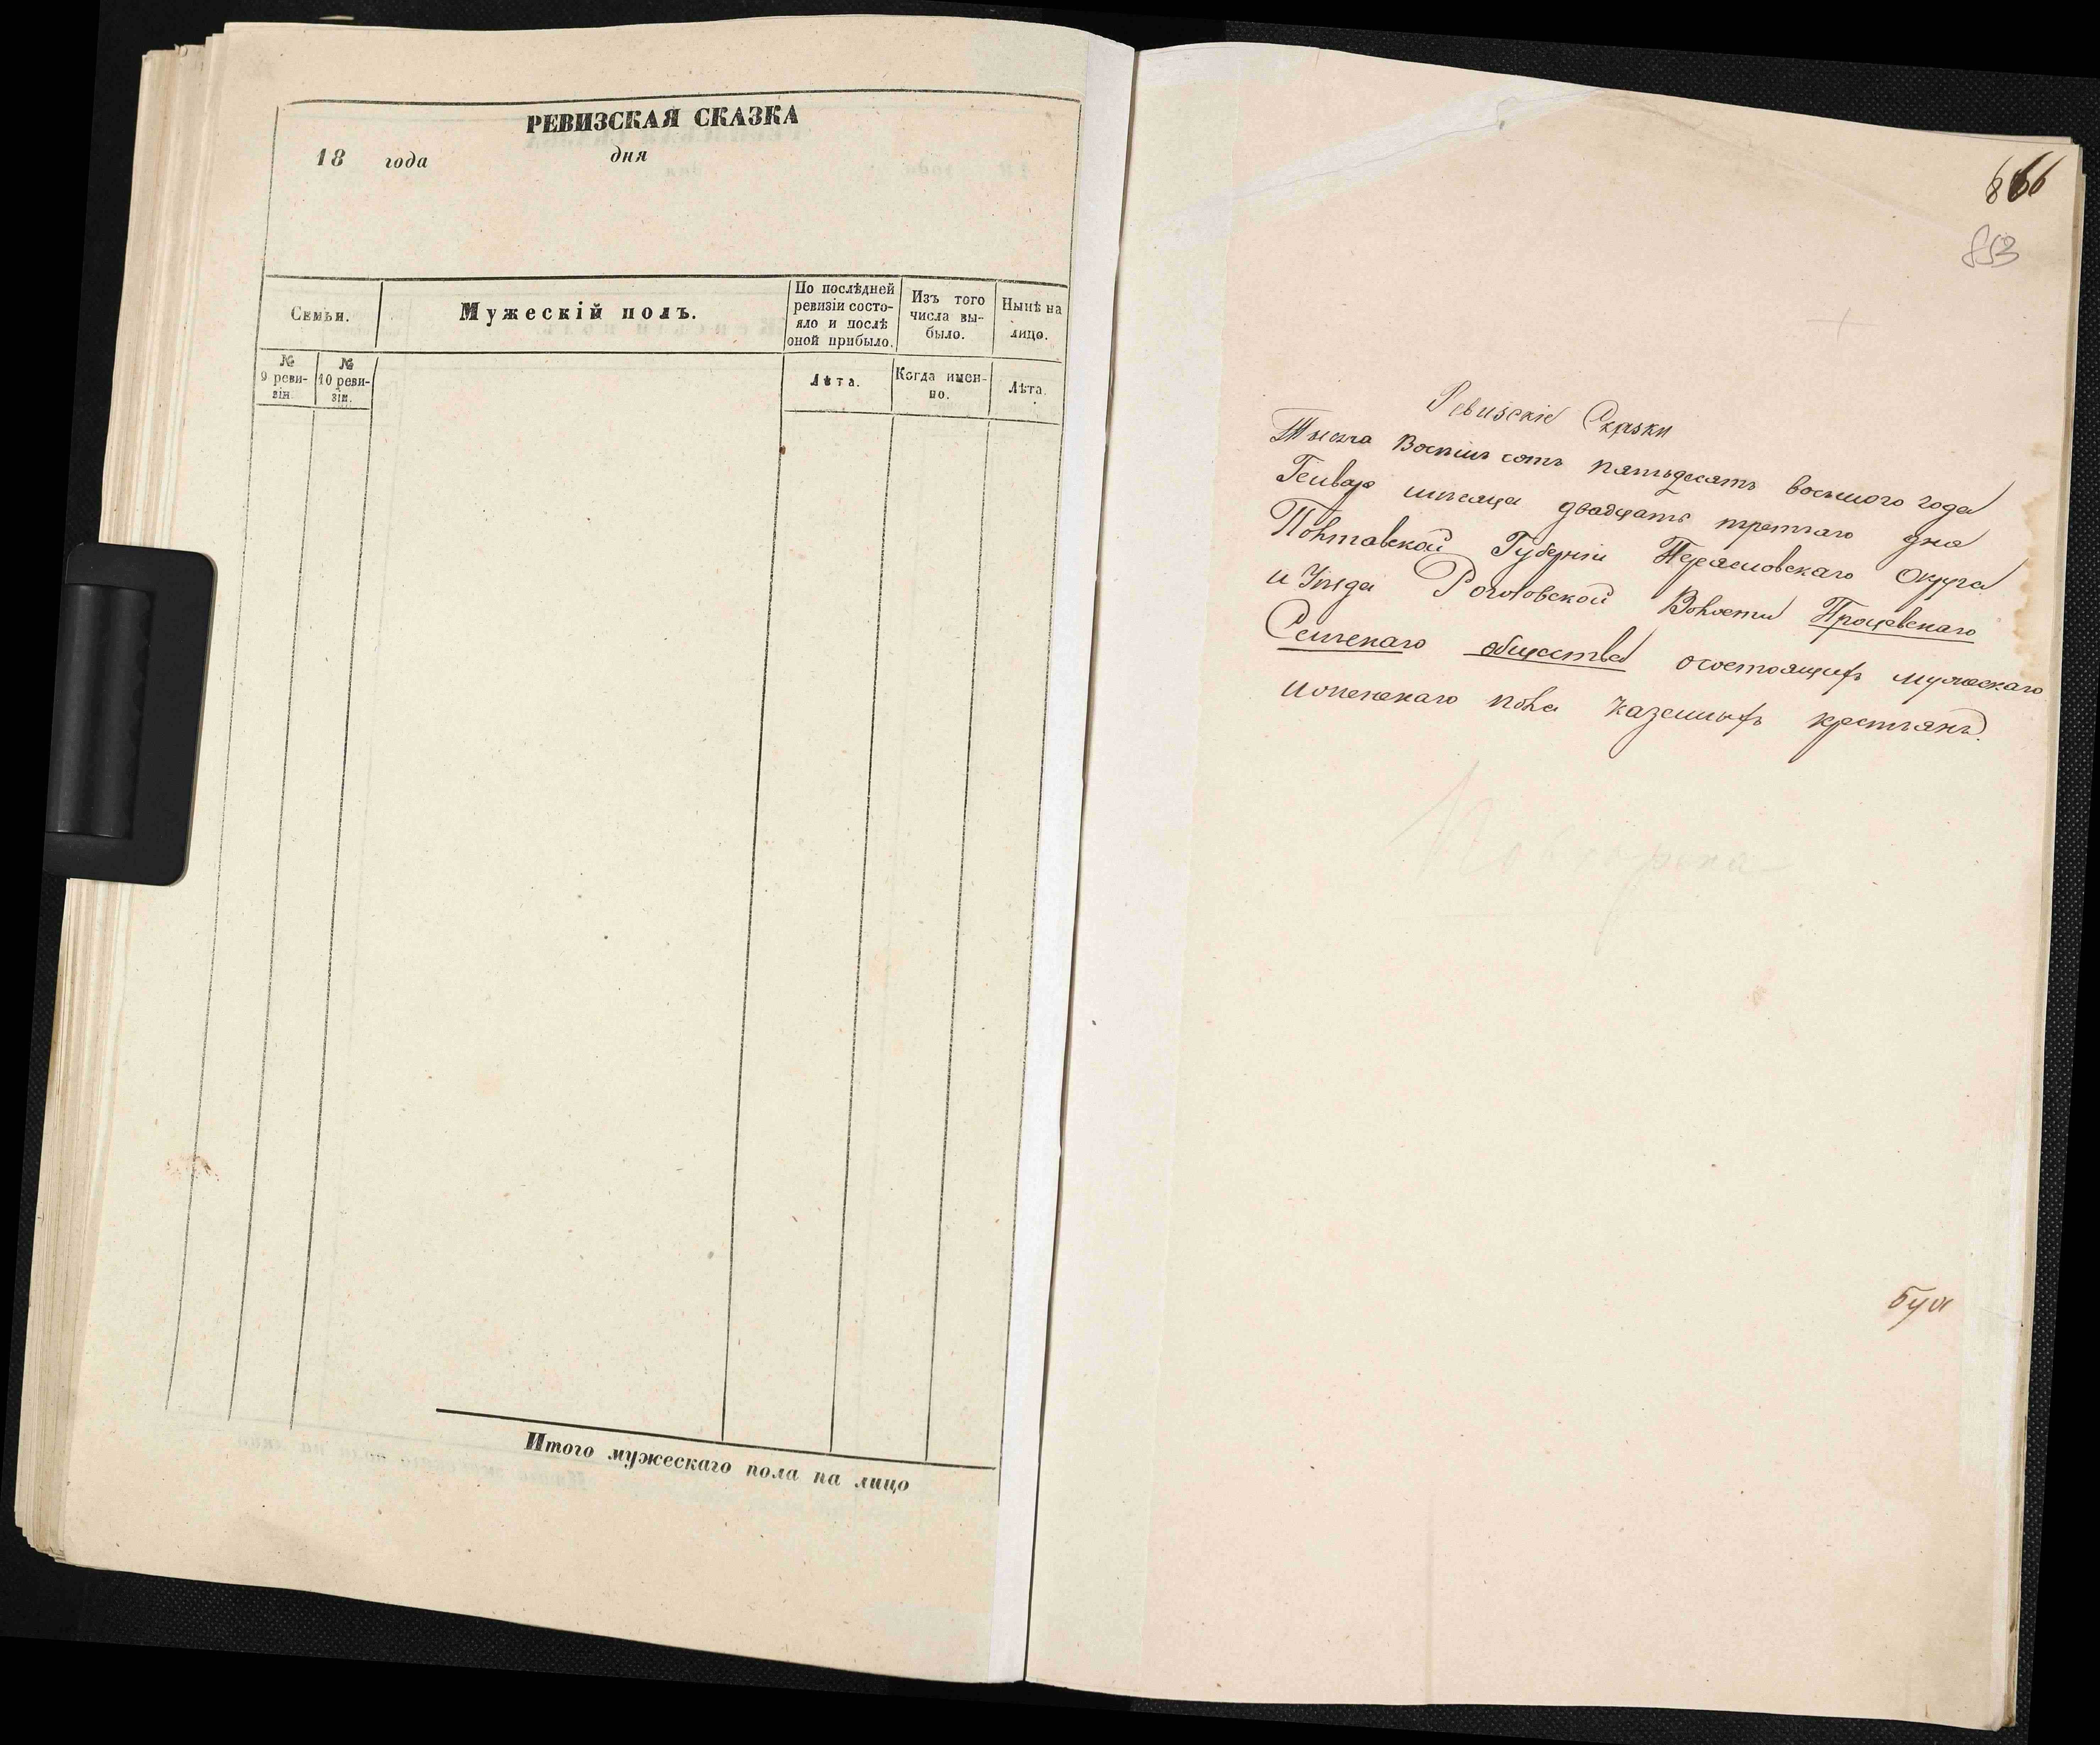 РЕВИЗСКАЯ СКАЗКА
18 года дня
Семьи.
Мужескій полъ.
По послѣдней
ревизіи состо-
яло и послѣ
оной прибыло.
Изъ того
числа вы-
было.
Нынѣ на
лицо.
№
9 реви-
зіи.
№
10 реви-
зіи.
Лѣта.
Когда имен-
но.
Лѣта.
Итого мужескаго пола на лицо
866
853
Ревизскіе Сказки
Тысяча Восимь сотъ пятьдесятъ восьмого года
Генваря мѣсяца двадцать третьяго дня
Полтавской Губерніи Переясловскаго Округа
и Уѣзда Рогозовской Волости Процевскаго
Сельскаго общества о состоящихъ мужескаго
и женскаго пола казенныхъ крестьянъ.